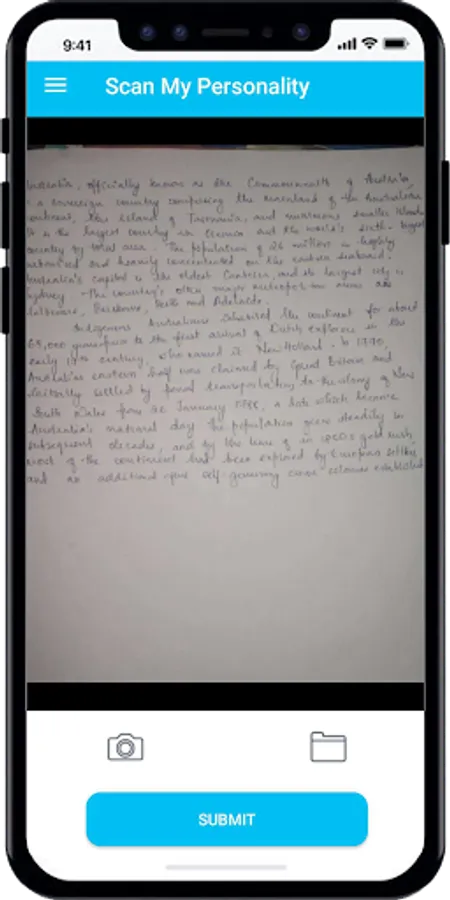 9:41
Scan My Personality
Australia, officially known as the Commonwealth of Australia,
is a sovereign country comprising the mainland of the Australian
continent, the island of Tasmania, and numerous smaller islands
It is the largest country in Oceania and the world's sixth-largest
country by total area. The population of 26 million is highly
urbanised and heavily concentrated on the eastern seaboard.
Australia's capital is the Canberra, and its largest city is
Sydney. The country's other major metropolitan areas are
Melbourne, Brisbane, Perth and Adelaide.
Indigenous Australians inhabited the continent for about
65,000 years prior to the first arrival of Dutch explorers in the
early 17th century, who named it New Holland. In 1770,
Australia's eastern half was claimed by Great Britain and
initially settled by penal transportation to the colony of New
South Wales from 26 January 1788, a date which became
Australia's national day. The population grew steadily in
subsequent decades, and by the time of an 1850s gold rush,
most of the continent had been explored by European settlers
and an additional five self-governing crown colonies established
SUBMIT